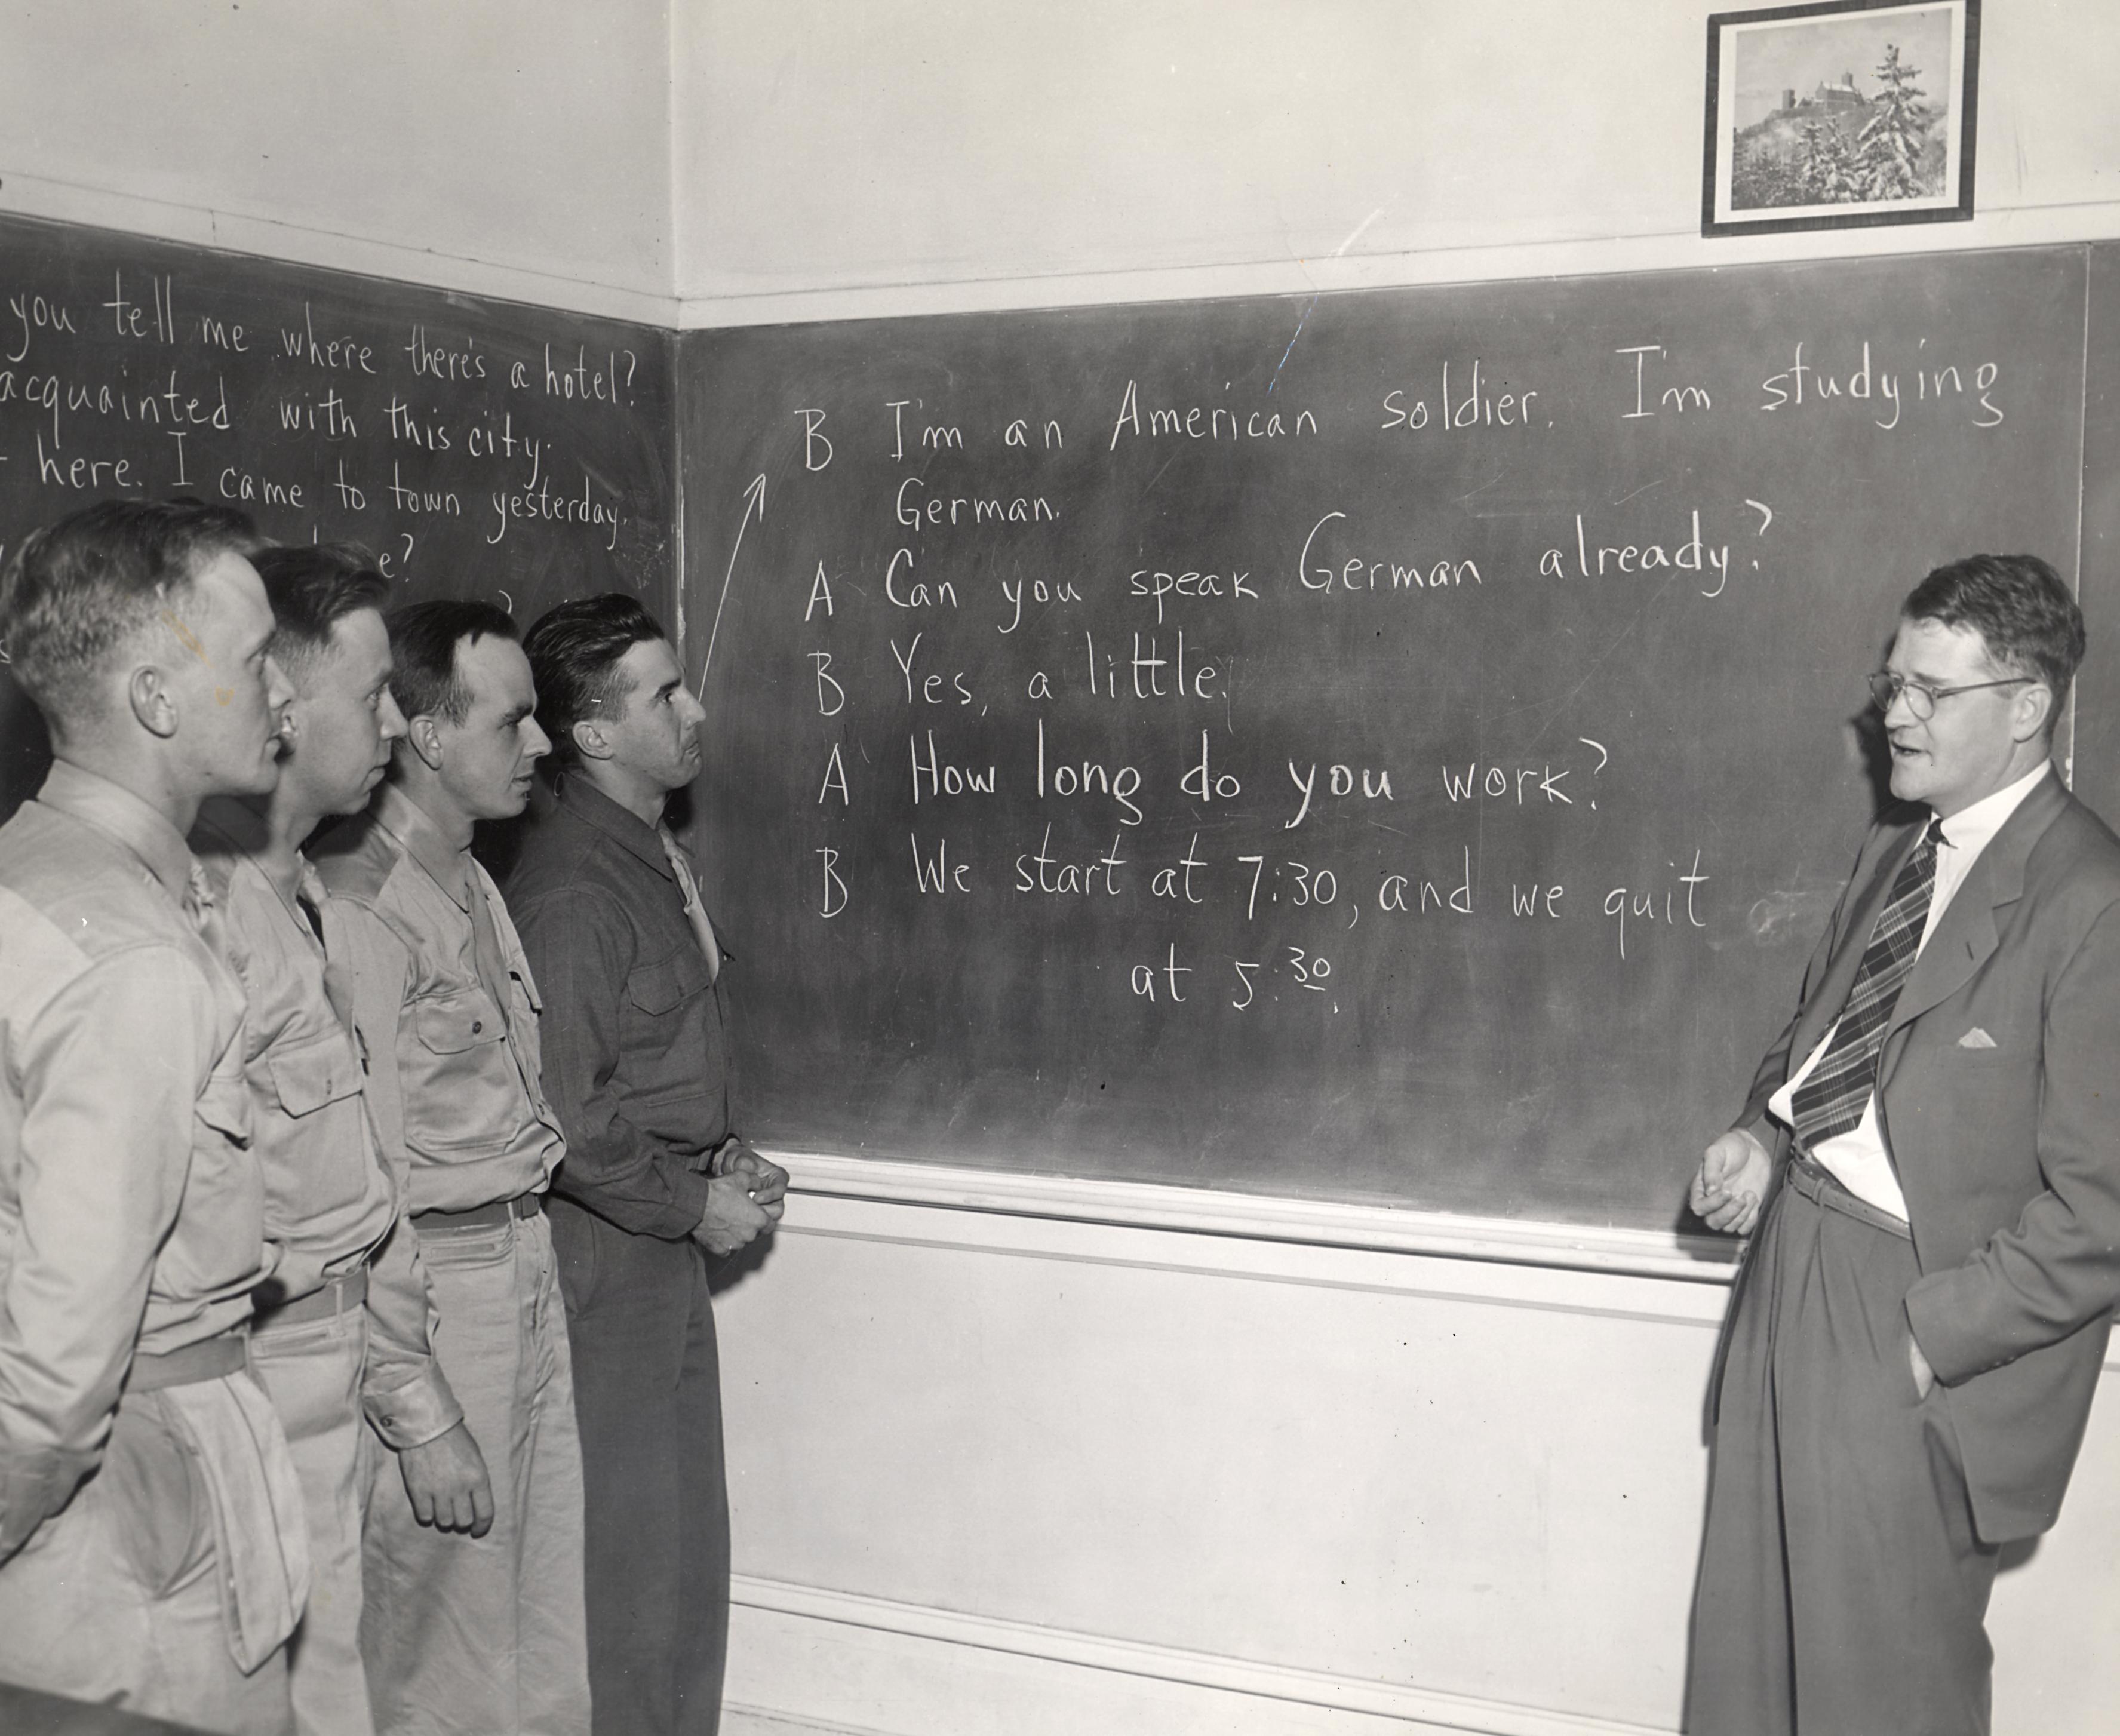 you tell me where there's a hotel?
acquainted with this city.
here. I came to town yesterday.
?
?
B I'm an American soldier. I'm studying
German.
A Can you speak German already?
B Yes, a little.
A How long do you work?
B We start at 7:30, and we quit
at 5:30.